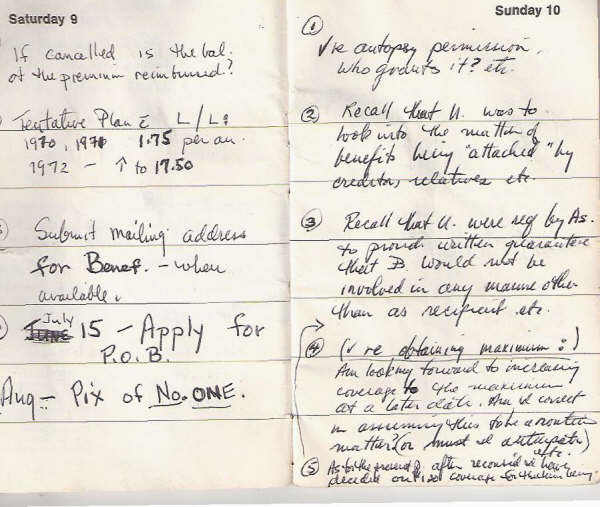 Saturday 9
If cancelled is the bal.
of the premium reimbursed?
Tentative Plan c̄ L/L:
1970, 1971 1.75 per an.
1972 — ↑ to 17.50
Submit mailing address
for Benef. — when
available.
July
JUNE 15 — Apply for
P.O.B.
Aug — Pix of No. ONE.
Sunday 10
① ✓ re autopsy permission,
who grants it? etc.
② Recall that U. was to
look into the matter of
benefits being "attached" by
creditors, relatives etc.
③ Recall that U. were req by As.
to provid written guarantee
that B would not be
involved in any manner other
than as recipient etc.
④ (✓ re obtaining maximum:)
Am looking forward to increasing
coverage to the maximum
at a later date. Am I correct
in assuming this to be a routine
matter? (or must I anticipate)
etc.
⑤ As for the present, after reconsid I have
decided on coverage for the time being.